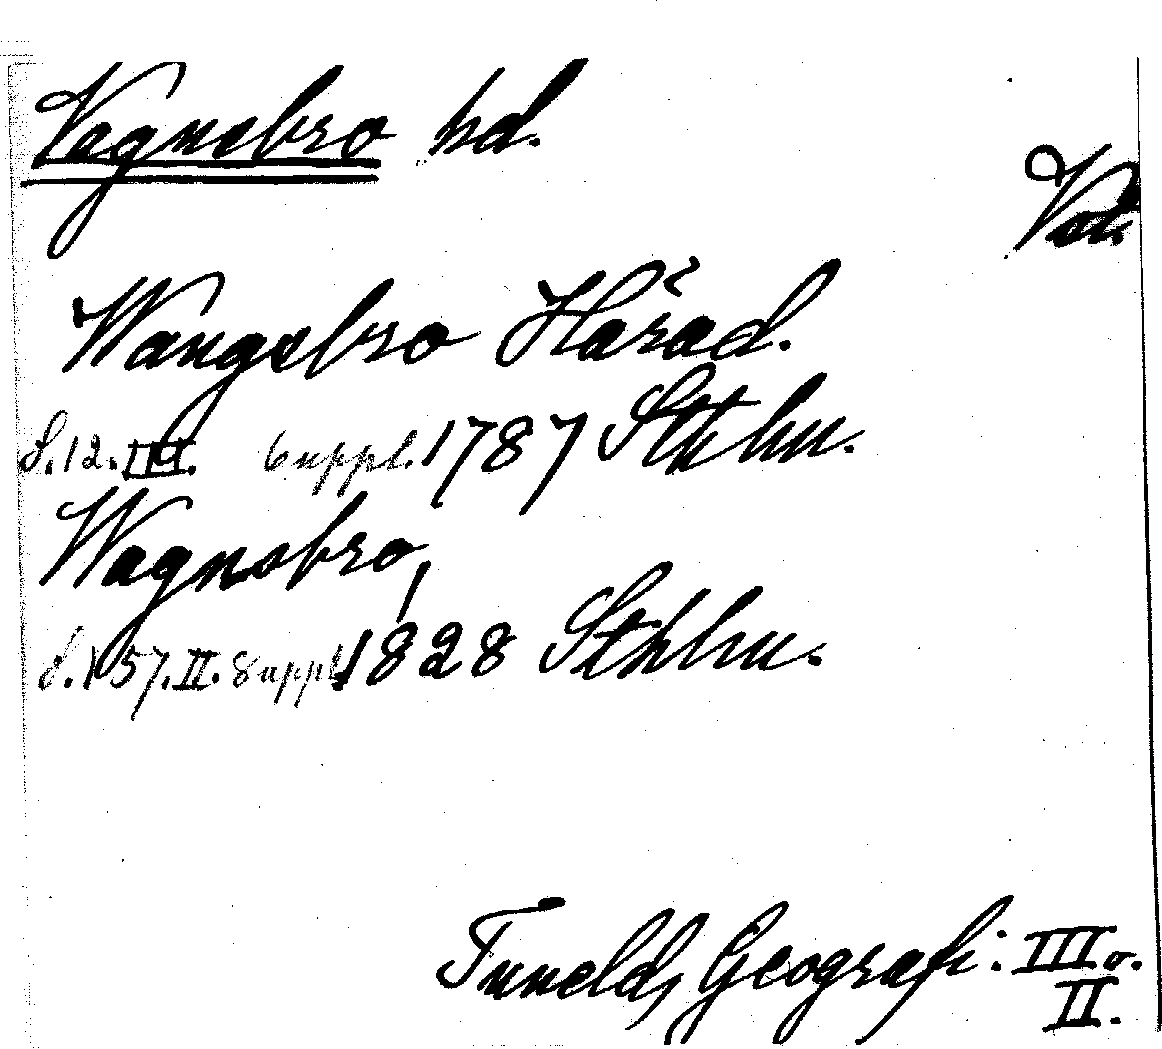 Vagnsbro hd.
Vstm.
Wangsbro Härad.
S. 12. III. suppl. 1787 Sthlm.
Wagnsbro,
S. 157. II. Suppl. 1828 Sthlm.
Tunelds Geografi: III o.
II.